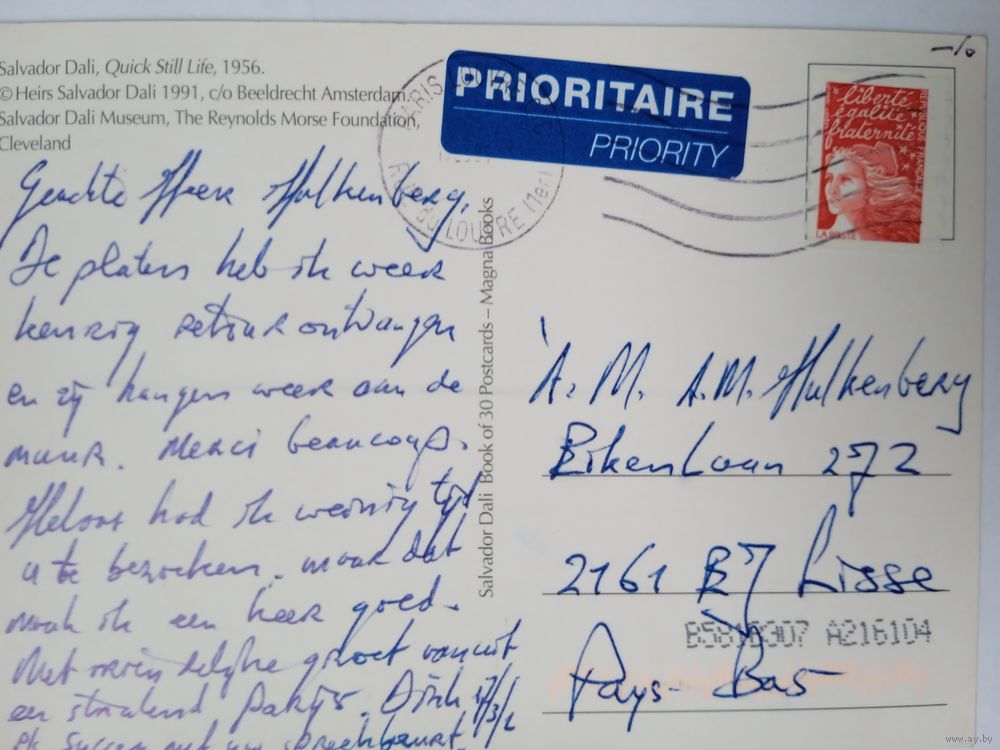 Salvador Dali, Quick Still Life, 1956.
© Heirs Salvador Dali 1991, c/o Beeldrecht Amsterdam.
Salvador Dali Museum, The Reynolds Morse Foundation,
Cleveland
PRIORITAIRE
PRIORITY
PARIS
DU LOUVRE (1er)
liberté
égalité
fraternité
RÉPUBLIQUE FRANÇAISE
LA POSTE
Geachte Heer Hulkenberg,
De platen heb ik weer
keurig retour ontvangen
en zij hangen weer aan de
muur. Merci beaucoup.
Helaas had ik weinig tijd
u te bezoeken. maar dat
maak ik een keer goed.
Met vriendelijke groet vanuit
een stralend Parijs. Dick
Salvador Dali Book of 30 Postcards – Magna Books
A. M. A.M. Hulkenberg
Eikenlaan 272
2161 Lisse
B581B307 A216104
Pays-Bas
www.ay.by